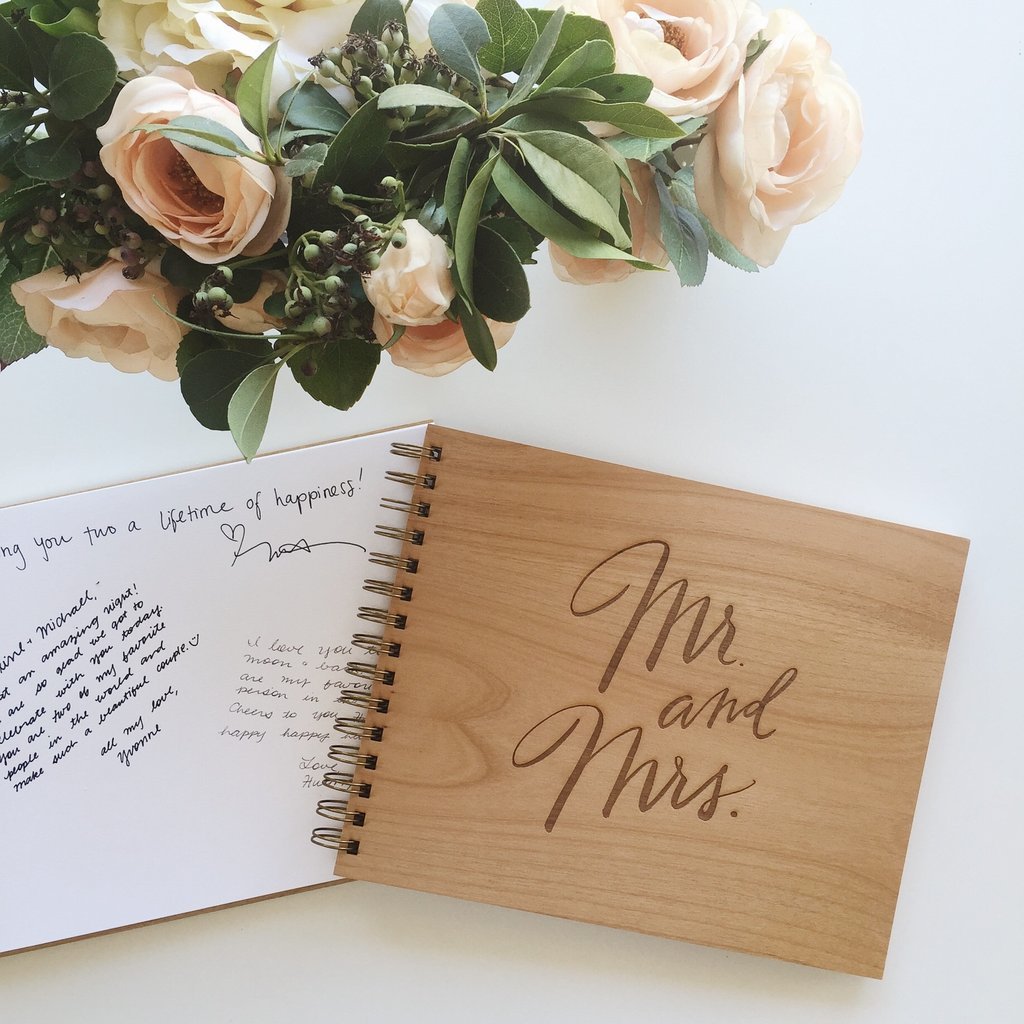 ng you two a lifetime of happiness!
+ Michael,
an amazing night!
are so glad we got to
celebrate with you today.
you are two of my favorite
people in the world and
make such a beautiful couple.
all my love,
Yvonne
I love you t
moon + ba
are my favor
person in
Cheers to you
happy happy
Love
Mr.
and
Mrs.